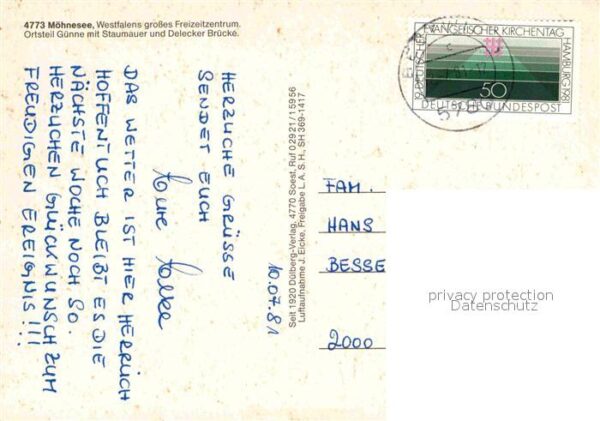 4773 Möhnesee, Westfalens großes Freizeitzentrum.
Ortsteil Günne mit Staumauer und Delecker Brücke.
HERZLICHE GRÜSSE
SENDET EUCH
Eure
DAS WETTER IST HIER HERRLICH
HOFFENTLICH BLEIBT ES DIE
NÄCHSTE WOCHE NOCH SO.
HERZLICHEN GLÜCKWUNSCH ZUM
FREUDIGEN EREIGNIS!!!
10.07.81
Seit 1920 Dülberg-Verlag, 4770 Soest, Ruf 0 29 21 / 1 59 56
Luftaufnahme J. Eicke, Freigabe L. A. S. H., SH 369-1417
19. DEUTSCHER EVANGELISCHER KIRCHENTAG
HAMBURG 1981
50
DEUTSCHE BUNDESPOST
FAM.
HANS
BESSE
2000
privacy protection
Datenschutz